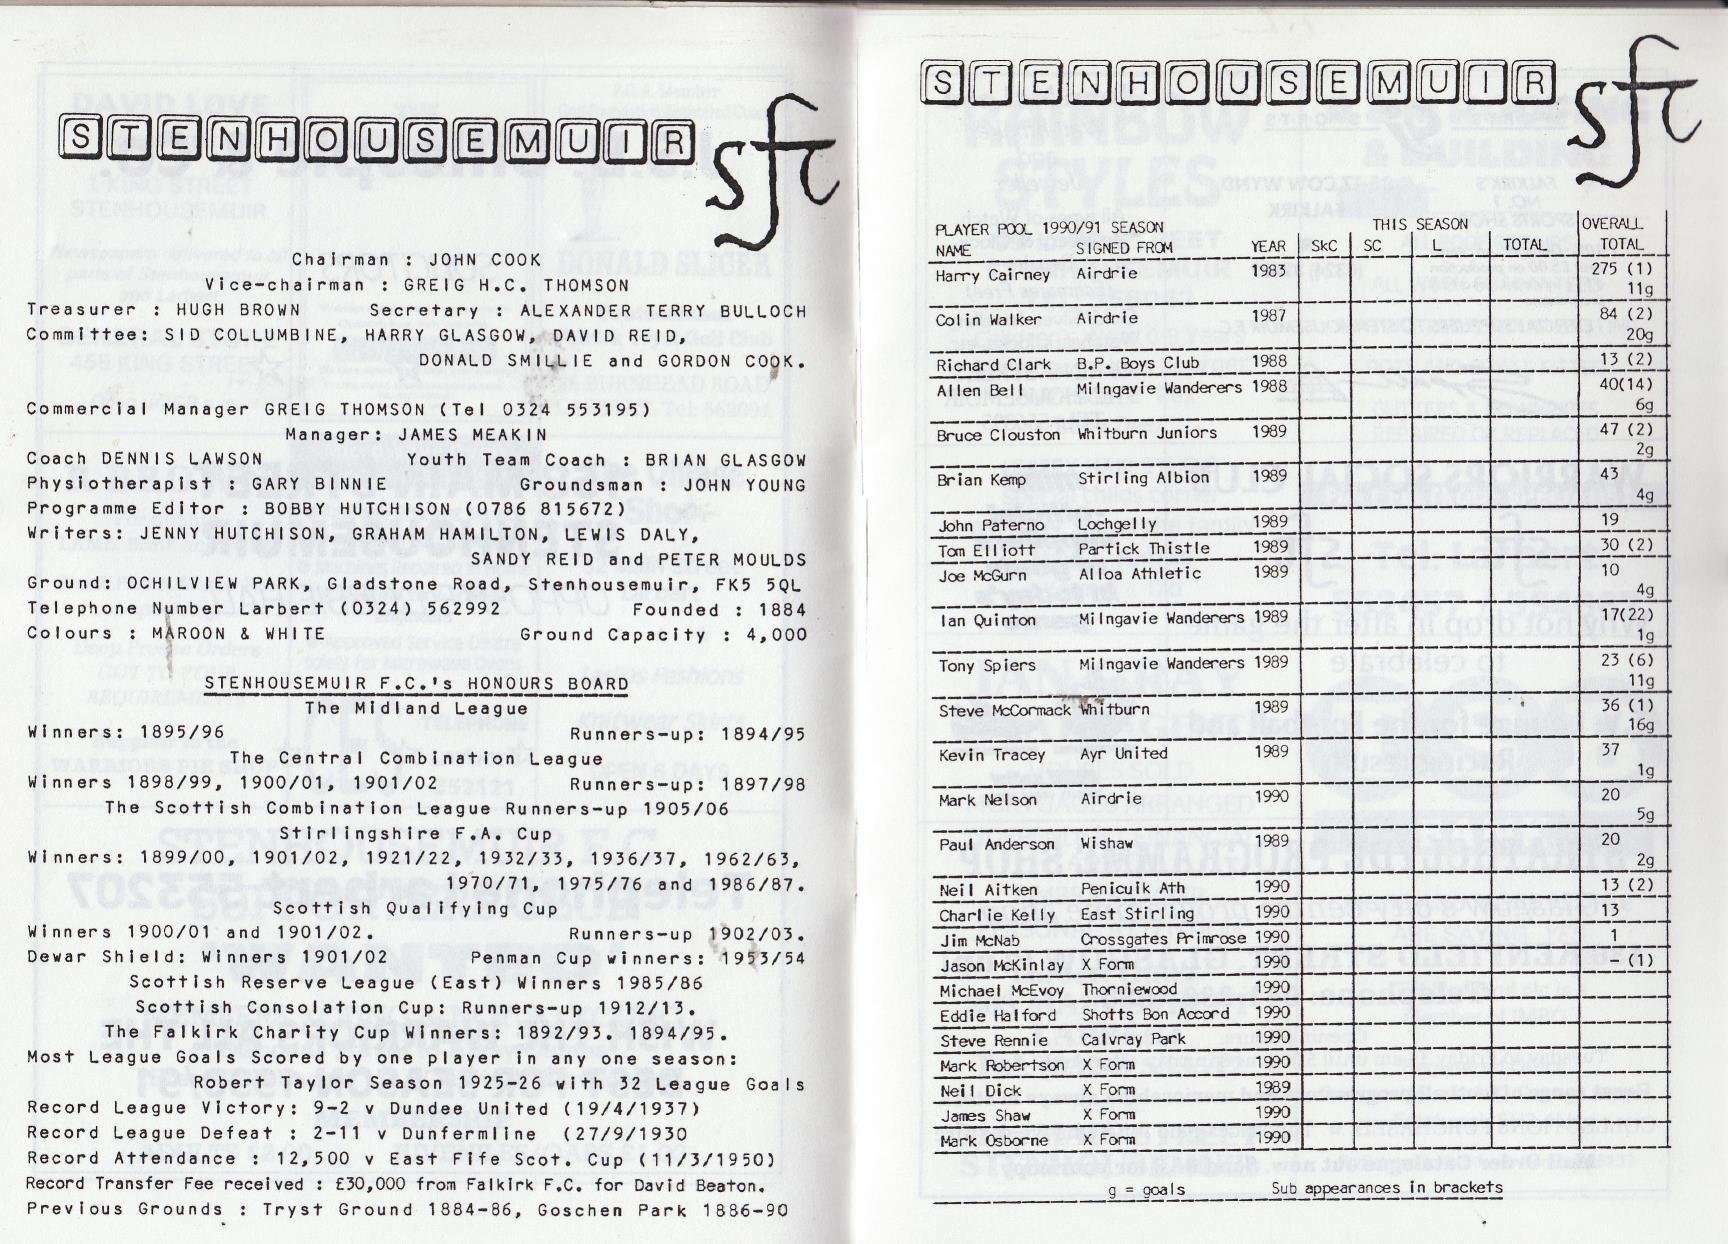 STENHOUSEMUIR sft
Chairman : JOHN COOK
Vice-chairman : GREIG H.C. THOMSON
Treasurer : HUGH BROWN Secretary : ALEXANDER TERRY BULLOCH
Committee: SID COLLUMBINE, HARRY GLASGOW, DAVID REID,
DONALD SMILLIE and GORDON COOK.
Commercial Manager GREIG THOMSON (Tel 0324 553195)
Manager: JAMES MEAKIN
Coach DENNIS LAWSON Youth Team Coach : BRIAN GLASGOW
Physiotherapist : GARY BINNIE Groundsman : JOHN YOUNG
Programme Editor : BOBBY HUTCHISON (0786 815672)
Writers: JENNY HUTCHISON, GRAHAM HAMILTON, LEWIS DALY,
SANDY REID and PETER MOULDS
Ground: OCHILVIEW PARK, Gladstone Road, Stenhousemuir, FK5 5QL
Telephone Number Larbert (0324) 562992 Founded : 1884
Colours : MAROON & WHITE Ground Capacity : 4,000
STENHOUSEMUIR F.C.'s HONOURS BOARD
The Midland League
Winners: 1895/96 Runners-up: 1894/95
The Central Combination League
Winners 1898/99, 1900/01, 1901/02 Runners-up: 1897/98
The Scottish Combination League Runners-up 1905/06
Stirlingshire F.A. Cup
Winners: 1899/00, 1901/02, 1921/22, 1932/33, 1936/37, 1962/63,
1970/71, 1975/76 and 1986/87.
Scottish Qualifying Cup
Winners 1900/01 and 1901/02. Runners-up 1902/03.
Dewar Shield: Winners 1901/02 Penman Cup winners: 1953/54
Scottish Reserve League (East) Winners 1985/86
Scottish Consolation Cup: Runners-up 1912/13.
The Falkirk Charity Cup Winners: 1892/93. 1894/95.
Most League Goals Scored by one player in any one season:
Robert Taylor Season 1925-26 with 32 League Goals
Record League Victory: 9-2 v Dundee United (19/4/1937)
Record League Defeat : 2-11 v Dunfermline (27/9/1930
Record Attendance : 12,500 v East Fife Scot. Cup (11/3/1950)
Record Transfer Fee received : £30,000 from Falkirk F.C. for David Beaton.
Previous Grounds : Tryst Ground 1884-86, Goschen Park 1886-90
STENHOUSEMUIR sft
PLAYER POOL 1990/91 SEASON THIS SEASON OVERALL
NAME SIGNED FROM YEAR SkC SC L TOTAL TOTAL
Harry Cairney Airdrie 1983 275 (1)
11g
Colin Walker Airdrie 1987 84 (2)
20g
Richard Clark B.P. Boys Club 1988 13 (2)
Allen Bell Milngavie Wanderers 1988 40(14)
6g
Bruce Clouston Whitburn Juniors 1989 47 (2)
2g
Brian Kemp Stirling Albion 1989 43
4g
John Paterno Lochgelly 1989 19
Tom Elliott Partick Thistle 1989 30 (2)
Joe McGurn Alloa Athletic 1989 10
4g
Ian Quinton Milngavie Wanderers 1989 17(22)
1g
Tony Spiers Milngavie Wanderers 1989 23 (6)
11g
Steve McCormack Whitburn 1989 36 (1)
16g
Kevin Tracey Ayr United 1989 37
1g
Mark Nelson Airdrie 1990 20
5g
Paul Anderson Wishaw 1989 20
2g
Neil Aitken Penicuik Ath 1990 13 (2)
Charlie Kelly East Stirling 1990 13
Jim McNab Crossgates Primrose 1990 1
Jason McKinlay X Form 1990 - (1)
Michael McEvoy Thorniewood 1990
Eddie Halford Shotts Bon Accord 1990
Steve Rennie Calvray Park 1990
Mark Robertson X Form 1990
Neil Dick X Form 1989
James Shaw X Form 1990
Mark Osborne X Form 1990
g = goals Sub appearances in brackets